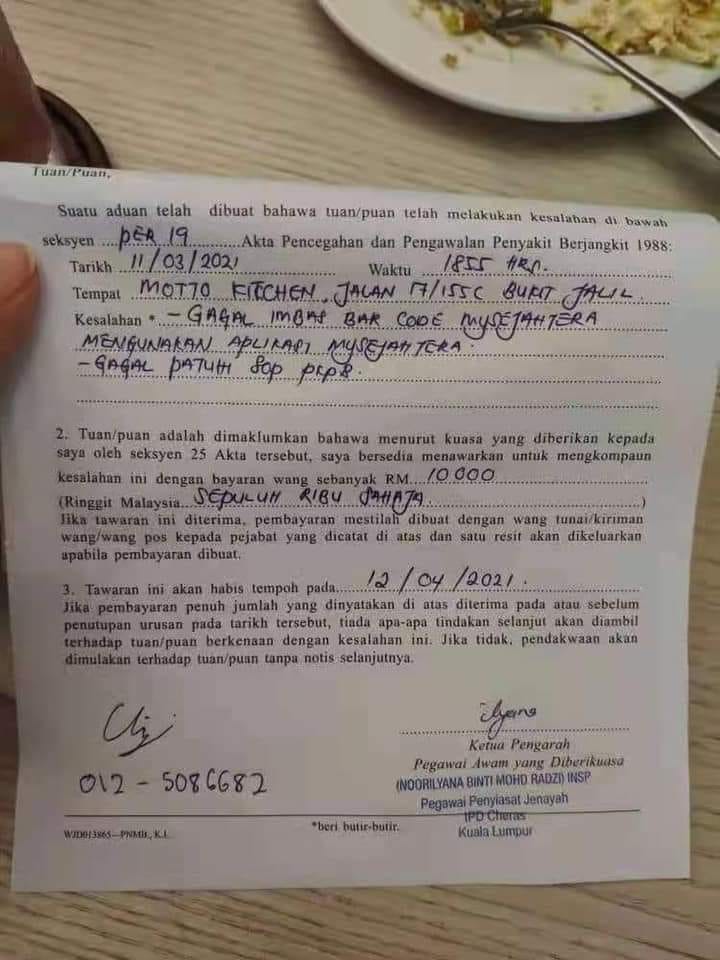 Tuan/Puan,
Suatu aduan telah dibuat bahawa tuan/puan telah melakukan kesalahan di bawah
seksyen ....PER 19............Akta Pencegahan dan Pengawalan Penyakit Berjangkit 1988:
Tarikh ..11/03/2021........................ Waktu ........1855 HRS.......
Tempat ..MOTTO KITCHEN, JALAN 17/155C BUKIT JALIL.
Kesalahan *..- GAGAL IMBAS BAR CODE MYSEJAHTERA
MENGUNAKAN APLIKASI MYSEJAHTERA.
- GAGAL PATUH SOP PKPB.
2. Tuan/puan adalah dimaklumkan bahawa menurut kuasa yang diberikan kepada
saya oleh seksyen 25 Akta tersebut, saya bersedia menawarkan untuk mengkompaun
kesalahan ini dengan bayaran wang sebanyak RM....10 000........................
(Ringgit Malaysia...SEPULUH RIBU SAHAJA........................)
Jika tawaran ini diterima, pembayaran mestilah dibuat dengan wang tunai/kiriman
wang/wang pos kepada pejabat yang dicatat di atas dan satu resit akan dikeluarkan
apabila pembayaran dibuat.
3. Tawaran ini akan habis tempoh pada......12/04/2021.....................
Jika pembayaran penuh jumlah yang dinyatakan di atas diterima pada atau sebelum
penutupan urusan pada tarikh tersebut, tiada apa-apa tindakan selanjut akan diambil
terhadap tuan/puan berkenaan dengan kesalahan ini. Jika tidak, pendakwaan akan
dimulakan terhadap tuan/puan tanpa notis selanjutnya.
Ketua Pengarah
Pegawai Awam yang Diberikuasa
(NOORILYANA BINTI MOHD RADZI) INSP
012 - 5086682
Pegawai Penyiasat Jenayah
IPD Cheras
Kuala Lumpur
*beri butir-butir.
WJD013865—PNMB., K.L.